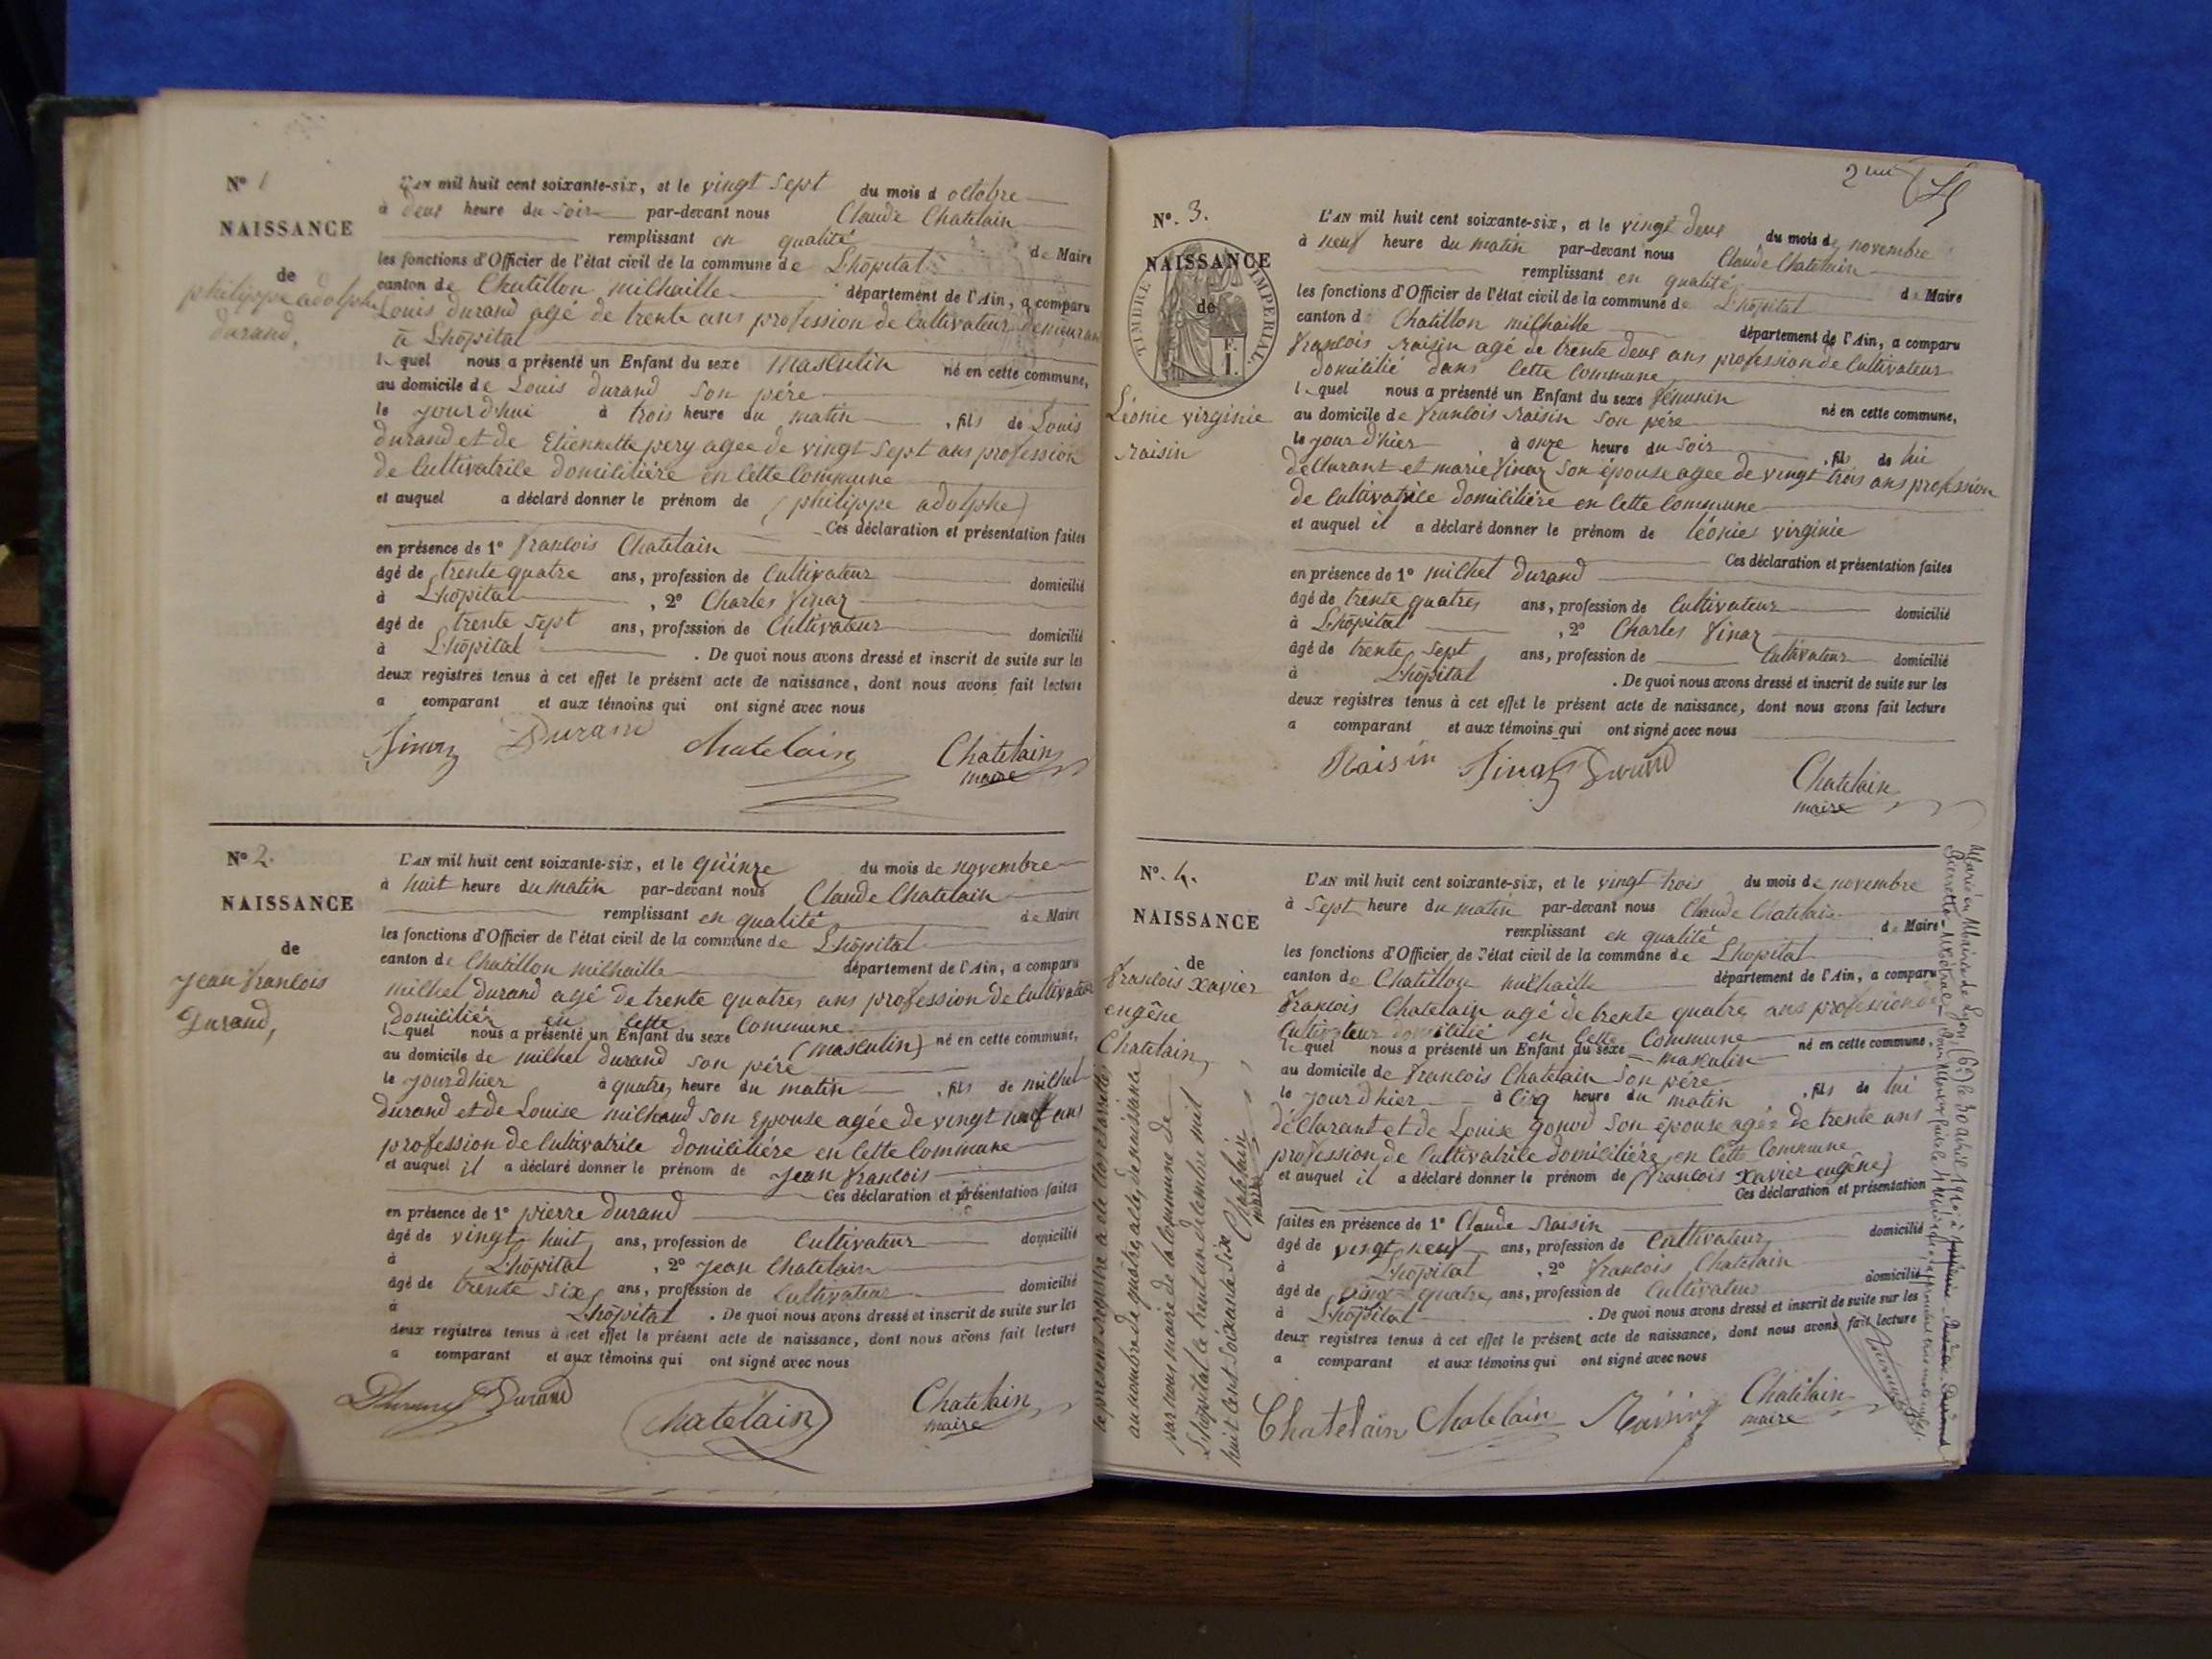 N° 1
NAISSANCE
de
philippe adolphe
durand,
L'AN mil huit cent soixante-six, et le vingt sept du mois d octobre
à deux heure du soir par-devant nous Claude Chatelain
remplissant en qualité de Maire
les fonctions d'Officier de l'état civil de la commune de Lhôpital
canton de Chatillon michaille département de l'Ain, a comparu
Louis durand agé de trente ans profession de Cultivateur demeurant
à Lhôpital
lequel nous a présenté un Enfant du sexe masculin né en cette commune,
au domicile de Louis durand son père
le jourd'hui à trois heure du matin, fils de Louis
durand et de Etiennette pery agee de vingt sept ans profession
de Cultivatrice domicilière en cette Commune
et auquel a déclaré donner le prénom de (philippe adolphe)
Ces déclaration et présentation faites
en présence de 1° francois Chatelain
âgé de trente quatre ans, profession de Cultivateur domicilié
à Lhôpital, 2° Charles Vinaz
âgé de trente sept ans, profession de Cultivateur domicilié
à Lhôpital. De quoi nous avons dressé et inscrit de suite sur les
deux registres tenus à cet effet le présent acte de naissance, dont nous avons fait lecture
a comparant et aux témoins qui ont signé avec nous
Vinaz Durand Chatelain Chatelain
maire
N° 2.
NAISSANCE
de
Jean francois
Durand,
L'AN mil huit cent soixante-six, et le quinze du mois de novembre
à huit heure du matin par-devant nous Claude Chatelain
remplissant en qualité de Maire
les fonctions d'Officier de l'état civil de la commune de Lhôpital
canton de Chatillon michaille département de l'Ain, a comparu
michel durand agé de trente quatres ans profession de Cultivateur
domicilier en cette Commune
lequel nous a présenté un Enfant du sexe (masculin) né en cette commune,
au domicile de michel durand son père
le jourdhier à quatre heure du matin, fils de michel
durand et de Louise michaud son Epouse agée de vingt neuf ans
profession de Cultivatrice domicilière en cette Commune
et auquel il a déclaré donner le prénom de Jean francois
Ces déclaration et présentation faites
en présence de 1° pierre durand
âgé de vingt huit ans, profession de Cultivateur domicilié
à Lhôpital, 2° Jean Chatelain
âgé de trente six ans, profession de Cultivateur domicilié
à Lhôpital. De quoi nous avons dressé et inscrit de suite sur les
deux registres tenus à cet effet le présent acte de naissance, dont nous avons fait lecture
a comparant et aux témoins qui ont signé avec nous
Durand Durand Chatelain Chatelain
maire
N°. 3.
NAISSANCE
de
TIMBRE IMPERIAL
F.
1.
Léonie virginie
raisin
L'AN mil huit cent soixante-six, et le vingt deux du mois de novembre
à neuf heure du matin par-devant nous Claude Chatelain
remplissant en qualité de Maire
les fonctions d'Officier de l'état civil de la commune de Lhôpital
canton de Chatillon michaille département de l'Ain, a comparu
francois raisin agé de trente deux ans profession de Cultivateur
domicilié dans cette Commune
lequel nous a présenté un Enfant du sexe féminin né en cette commune,
au domicile de francois raisin son père
le jourd'hier à onze heure du soir, fil de lui
déclarant et marie Vinaz son épouse agee de vingt trois ans profession
de Cultivatrice domicilière en cette Commune
et auquel il a déclaré donner le prénom de léonies virginie
Ces déclaration et présentation faites
en présence de 1° michel durand
âgé de trente quatres ans, profession de Cultivateur domicilié
à Lhôpital, 2° Charles Vinaz
âgé de trente sept ans, profession de Cultivateur domicilié
à Lhôpital. De quoi nous avons dressé et inscrit de suite sur les
deux registres tenus à cet effet le présent acte de naissance, dont nous avons fait lecture
a comparant et aux témoins qui ont signé avec nous
Raisin Vinaz Durand Chatelain
maire
N°. 4.
NAISSANCE
de
francois Xavier
eugêne
Chatelain,
L'AN mil huit cent soixante-six, et le vingt trois du mois de novembre
à sept heure du matin par-devant nous Claude Chatelain
remplissant en qualité de Maire
les fonctions d'Officier de l'état civil de la commune de Lhopital
canton de Chatillon michaille département de l'Ain, a comparu
francois Chatelain agé de trente quatre ans profession de
Cultivateur domicilié en cette Commune
lequel nous a présenté un Enfant du sexe masculin né en cette commune,
au domicile de francois Chatelain son père
le jourd'hier à Cinq heure du matin, fils de lui
déclarant et de Louise gonod son épouse agée de trente ans
profession de Cultivatrice domicilière en cette Commune
et auquel il a déclaré donner le prénom de (francois Xavier eugêne)
Ces déclaration et présentation
faites en présence de 1° Claude raisin
âgé de vingt neuf ans, profession de Cultivateur domicilié
à Lhôpital, 2° francois Chatelain
âgé de quatre ans, profession de Cultivateur domicilié
à Lhôpital. De quoi nous avons dressé et inscrit de suite sur les
deux registres tenus à cet effet le présent acte de naissance, dont nous avons fait lecture
a comparant et aux témoins qui ont signé avec nous
Chatelain Chatelain Raisin Chatelain
maire
le présent registre a été Clos et arrêté,
au nombre de quatre, acte, de naissance
par nous maire de la commune de
Lhôpital le trente un décembre mil
huit cent soixante six Chatelain
maire
Marié en Mairie de Lyon (6e) le 30 avril
Pierrette